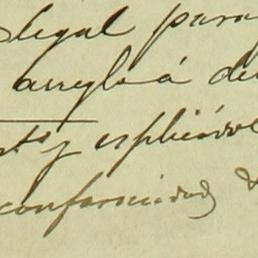 legal para
arregló á de
tos y esplicó
conformidad